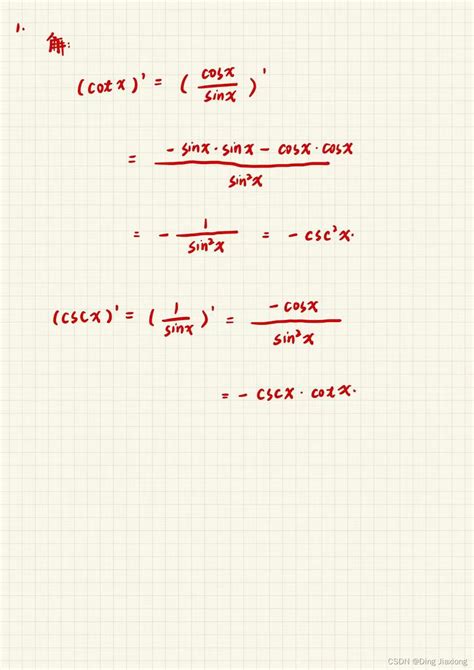 1.
解:
(cot x)' = (cosx/sinx)'
= (-sinx·sinx - cosx·cosx)/sin²x
= -1/sin²x = -csc²x.
(cscx)' = (1/sinx)' = -cosx/sin²x
= -cscx·cotx.
CSDN @Ding Jiaxiong